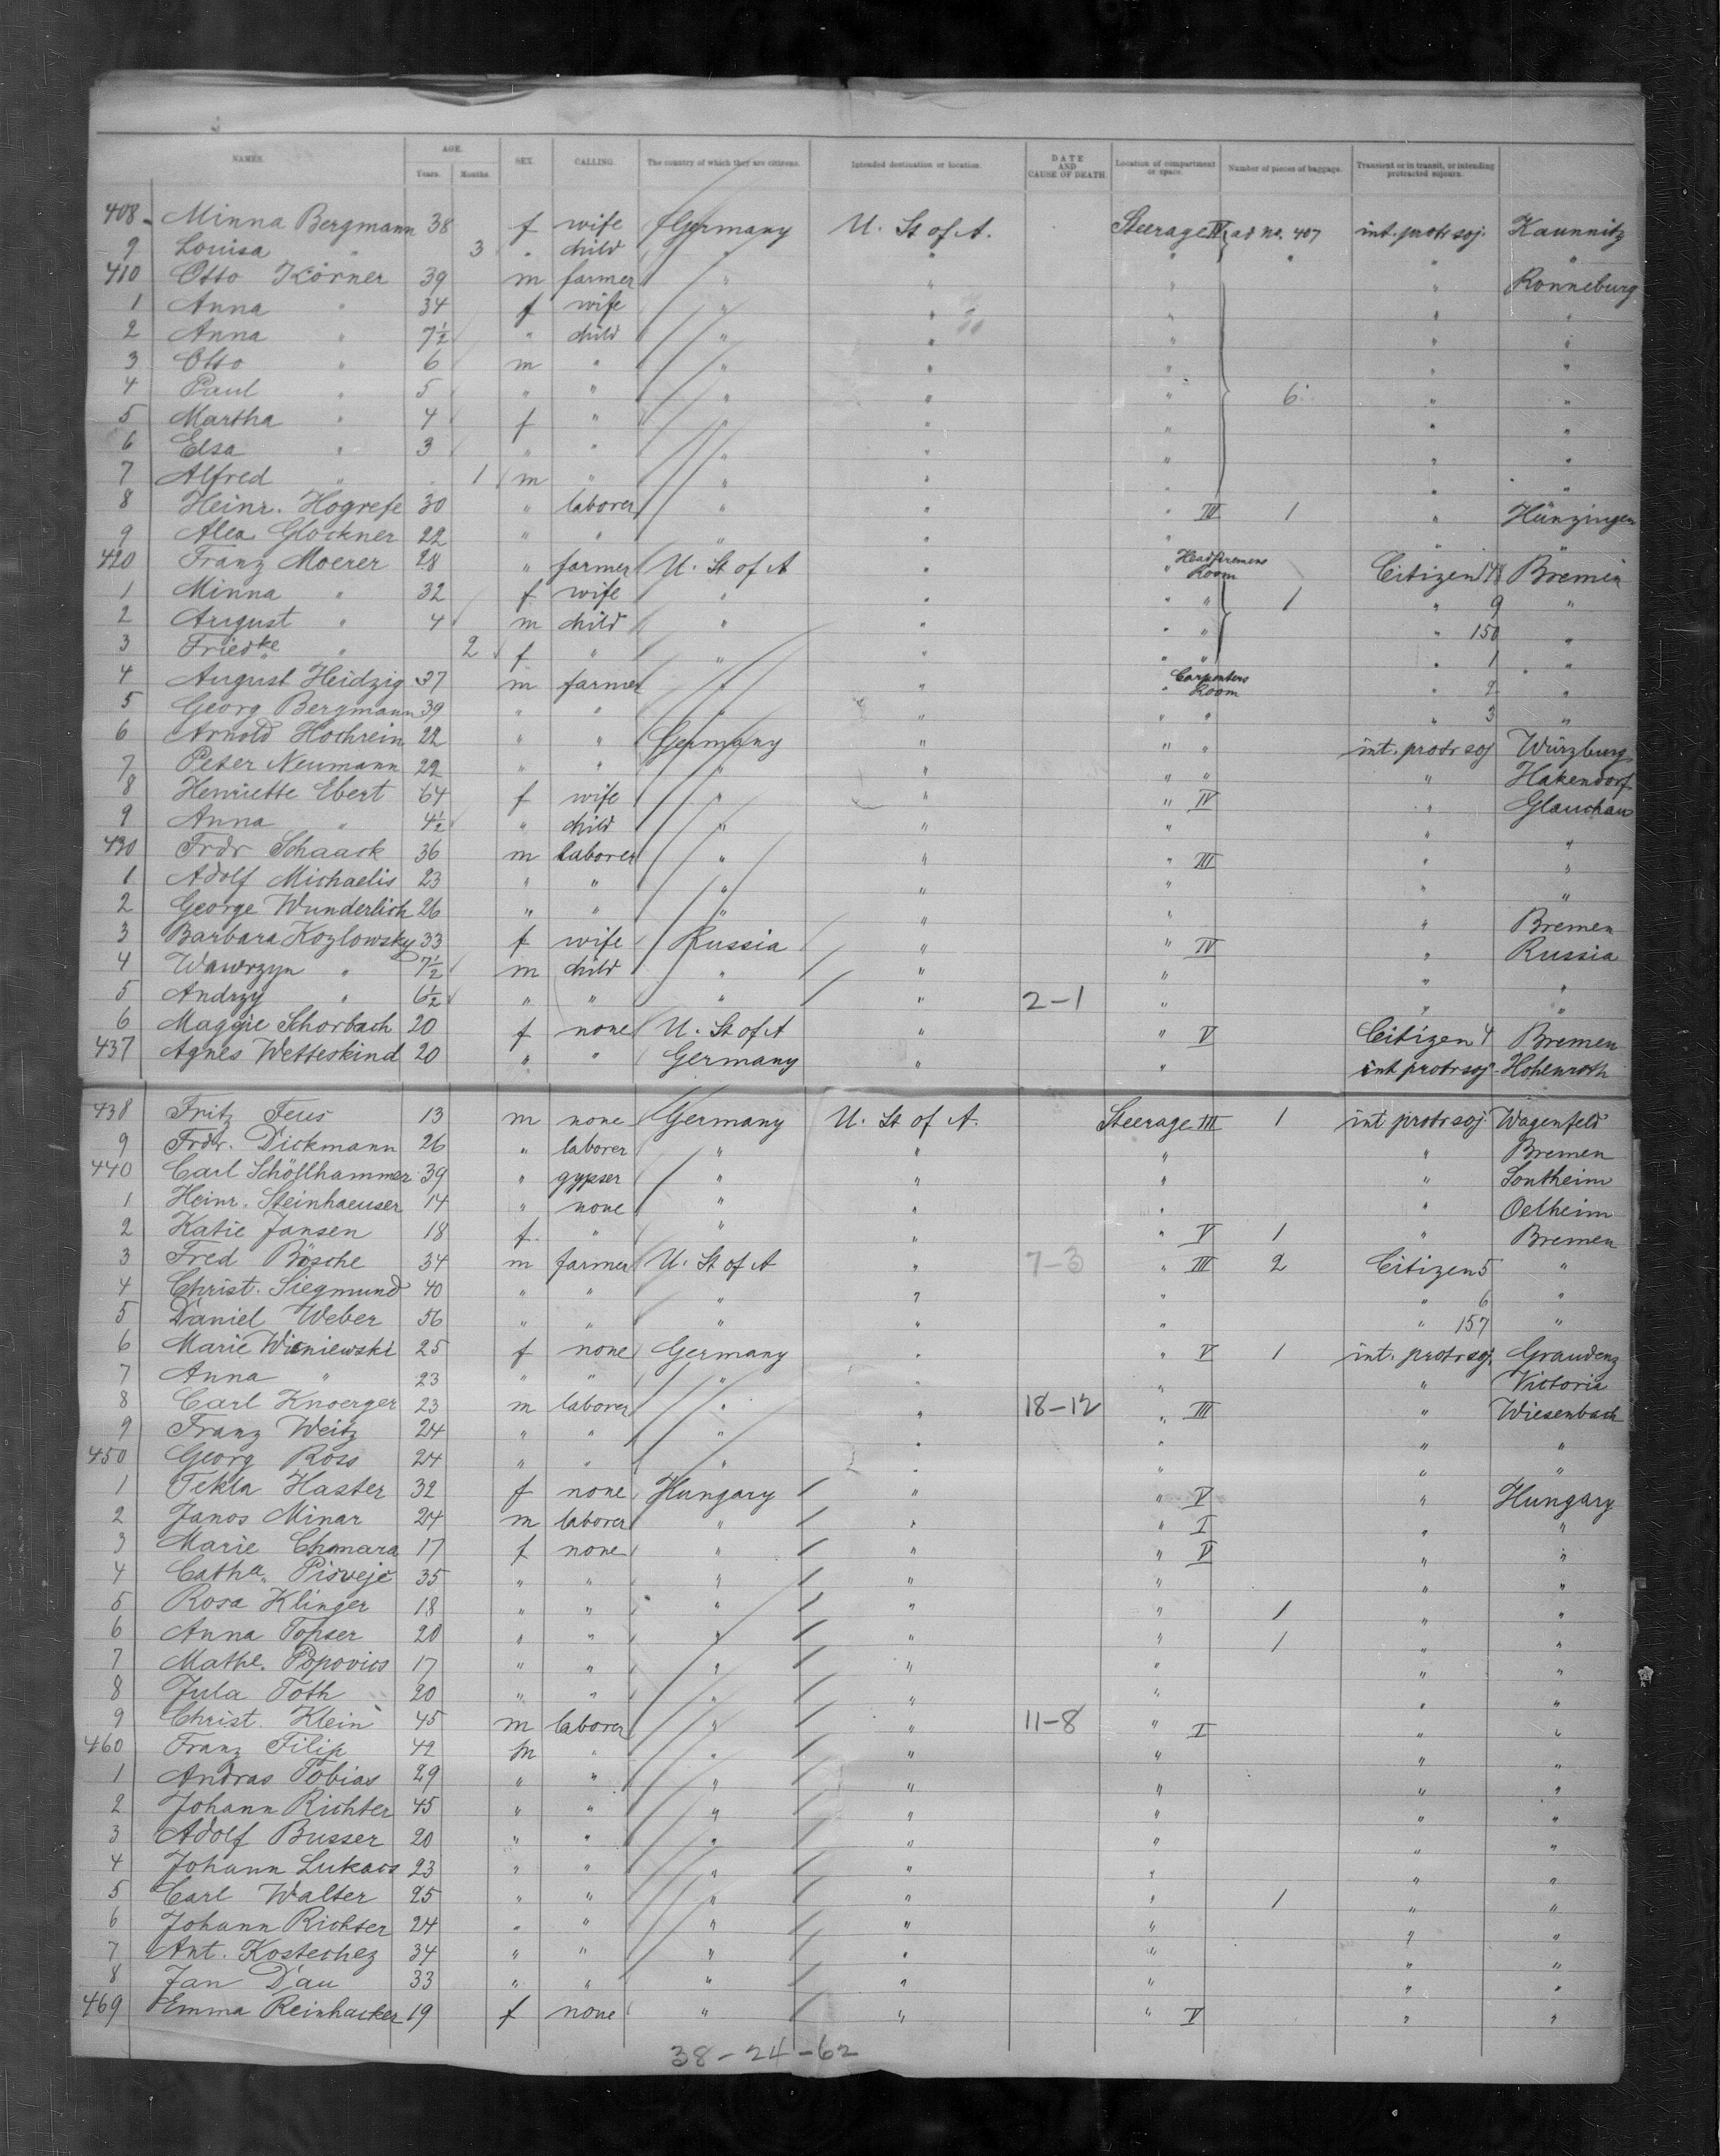 NAMES. AGE. Years. Months. SEX. CALLING. The country of which they are citizens. Intended destination or location. DATE AND CAUSE OF DEATH Location of compartment or space. Number of pieces of baggage. Transient or in transit, or intending protracted sojourn.
408 Minna Bergmann 38 f wife Germany U. St of A. Steerage IV ad no. 407 int. protr soj. Kaunnitz
9 Louisa " 3 " child " " " " " "
410 Otto Körner 39 m farmer " " " " Ronneburg
1 Anna " 34 f wife " " " " "
2 Anna " 7½ " child " " " " "
3 Otto " 6 m " " " " " "
4 Paul " 5 " " " " " 6 " "
5 Martha " 4 f " " " " " "
6 Elsa " 3 " " " " " " "
7 Alfred " 1 m " " " " " "
8 Heinr. Hogrefe 30 " laborer " " " III 1 " Hünzingen
9 Alex Glockner 22 " " " " " "
420 Franz Moerer 28 " farmer U. St of A " " Headfiremens Room Citizen 148 Bremen
1 Minna " 32 f wife " " " " 1 " 9 "
2 August " 4 m child " " " " " 150 "
3 Friedke " 2 f " " " " " " 1 "
4 August Heidzig 37 m farmer " " " Carpenters Room " 2 "
5 Georg Bergmann 39 " " " " " " " 3 "
6 Arnold Hochrein 22 " " Germany " " " int. protr soj Würzburg
7 Peter Neumann 22 " " " " " " " Hakendorf
8 Henriette Ebert 64 f wife " " " IV " Glauchau
9 Anna " 4½ " child " " " " "
430 Frdr Schaack 36 m laborer " " " III " "
1 Adolf Michaelis 23 " " " " " " "
2 George Wunderlich 26 " " " " " " Bremen
3 Barbara Kozlowsky 33 f wife Russia " " IV " Russia
4 Wawrzyn " 7½ m child " " " " "
5 Andrzy " 6½ " " " " 2-1 " " "
6 Maggie Schorbach 20 f none U. St of A " " V Citizen 4 Bremen
437 Agnes Wetteskind 20 " " Germany " " int protr soj Hohenroth
438 Fritz Feus 13 m none Germany U. St of A. Steerage III 1 int protr soj. Wagenfeld
9 Frdr. Dickmann 26 " laborer " " " " Bremen
440 Carl Schöllhammer 39 " gypser " " " " Sontheim
1 Heinr. Steinhaeuser 14 " none " " " " Oelheim
2 Katie Jansen 18 f " " " " V 1 " Bremen
3 Fred Bösche 34 m farmer U. St of A " 7-3 " III 2 Citizen 5 "
4 Christ. Siegmund 40 " " " " " " 6 "
5 Daniel Weber 56 " " " " " " 157 "
6 Marie Wisniewski 25 f none Germany " " V 1 int. protr soj. Graudenz
7 Anna " 23 " " " " " " Victoria
8 Carl Knoerger 23 m laborer " " 18-12 " III " Wiesenbach
9 Franz Weitz 24 " " " " " " "
450 Georg Ross 24 " " " " " " "
1 Tekla Haster 32 f none Hungary " " V " Hungary
2 Janos Minar 24 m laborer " " " I " "
3 Marie Chmara 17 f none " " " V " "
4 Catha. Pisveje 35 " " " " " " "
5 Rosa Klinger 18 " " " " " 1 " "
6 Anna Topser 20 " " " " " 1 " "
7 Mathe. Popovics 17 " " " " " " "
8 Jula Toth 20 " " " " " " "
9 Christ. Klein 45 m laborer " " 11-8 " I " "
460 Franz Filip 42 m " " " " " "
1 Andras Tobias 29 " " " " " " "
2 Johann Richter 45 " " " " " " "
3 Adolf Busser 20 " " " " " " "
4 Johann Lukacs 23 " " " " " " "
5 Carl Walter 25 " " " " " 1 " "
6 Johann Richter 24 " " " " " " "
7 Ant. Kostechez 34 " " " " " " "
8 Jan Dau 33 " " " " " " "
469 Emma Reinhacker 19 f none " " " V " "
38-24-62